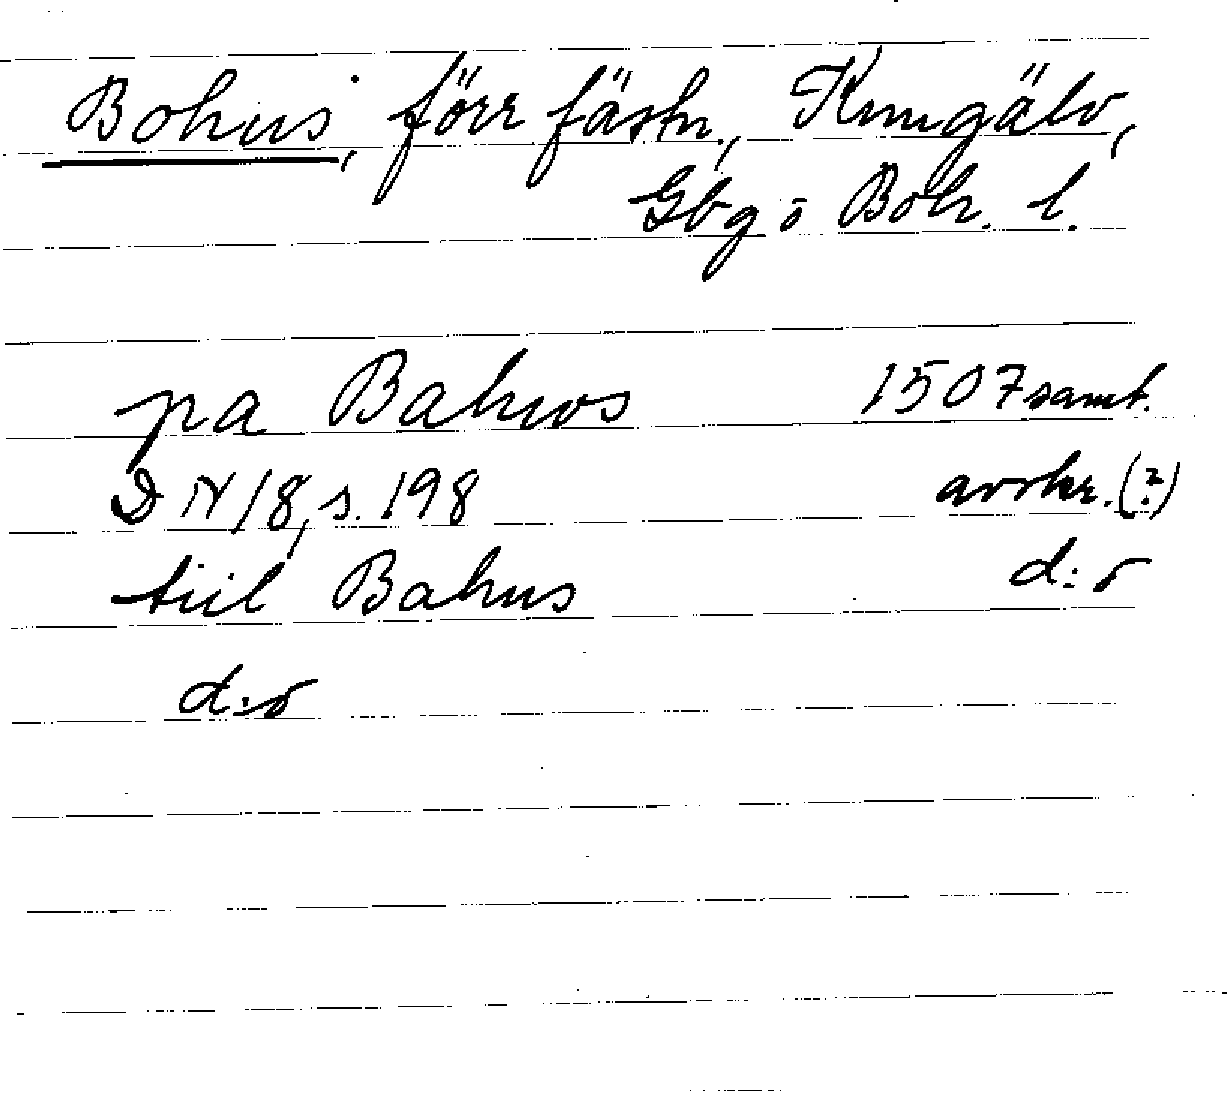 Bohus, förr fästn., Kungälv,
Gbg o Boh. l.
pa Bahws 1507 samt.
DN 18, s. 198 avskr. (?)
tiil Bahus d:o
d:o